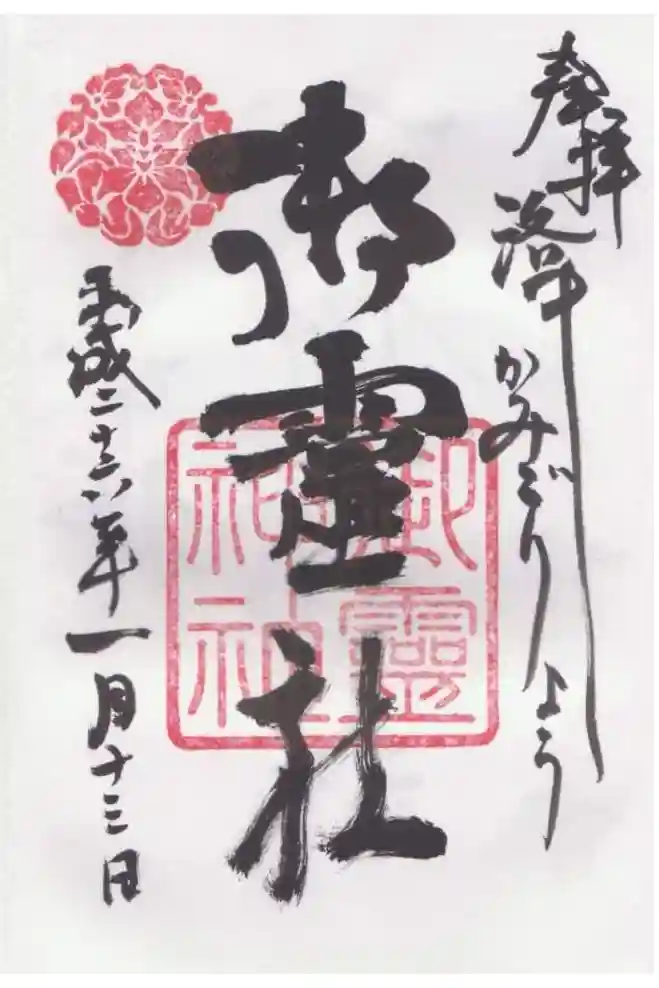 奉拝
洛中かみごりょう
御靈社
御靈神社
平成二十六年一月十三日